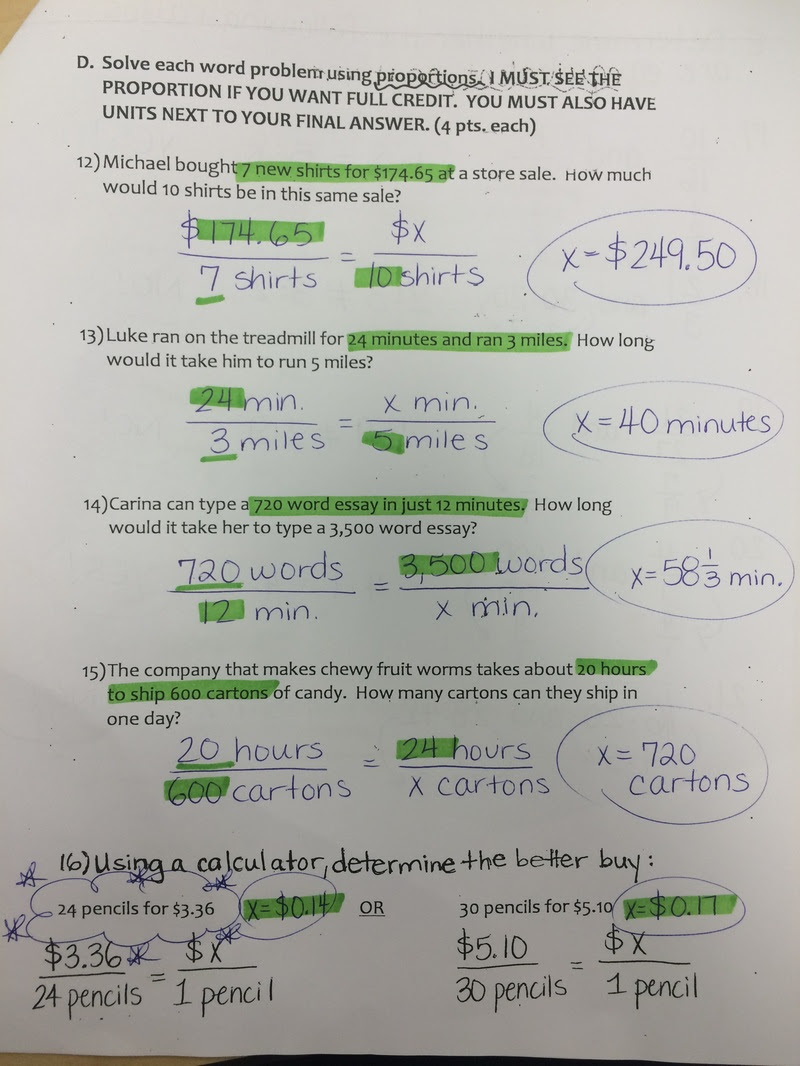 D. Solve each word problem using proportions. I MUST SEE THE
PROPORTION IF YOU WANT FULL CREDIT. YOU MUST ALSO HAVE
UNITS NEXT TO YOUR FINAL ANSWER. (4 pts. each)
12) Michael bought 7 new shirts for $174.65 at a store sale. How much
would 10 shirts be in this same sale?
$174.65 $x
= x = $249.50
7 shirts 10 shirts
13) Luke ran on the treadmill for 24 minutes and ran 3 miles. How long
would it take him to run 5 miles?
24 min. x min.
= x = 40 minutes
3 miles 5 miles
14) Carina can type a 720 word essay in just 12 minutes. How long
would it take her to type a 3,500 word essay?
720 words 3,500 words
= x = 58 1/3 min.
12 min. x min.
15) The company that makes chewy fruit worms takes about 20 hours
to ship 600 cartons of candy. How many cartons can they ship in
one day?
20 hours = 24 hours x = 720
600 cartons x cartons cartons
16) Using a calculator, determine the better buy:
24 pencils for $3.36 x = $0.14 OR 30 pencils for $5.10 x = $0.17
$3.36 = $x $5.10 = $x
24 pencils 1 pencil 30 pencils 1 pencil